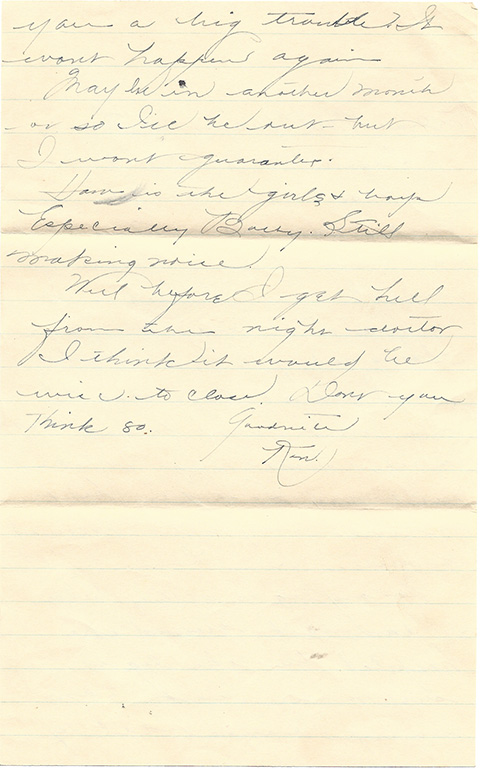 you a big trouble. It
wont happen again
Maybe in another month
or so I'll be out but
I wont guarantee.
How is the girls & boys
Especially Batty. Still
making noise.
Well before I get hell
from the night doctor
I think it would be
wise to close. Dont you
think so. Goodnite